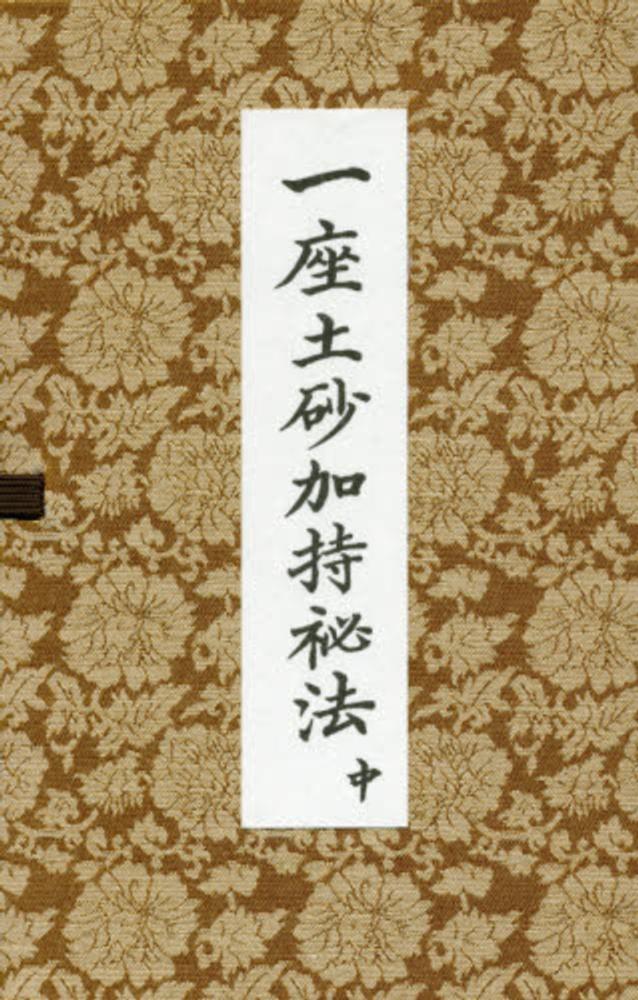 一座土砂加持祕法 中